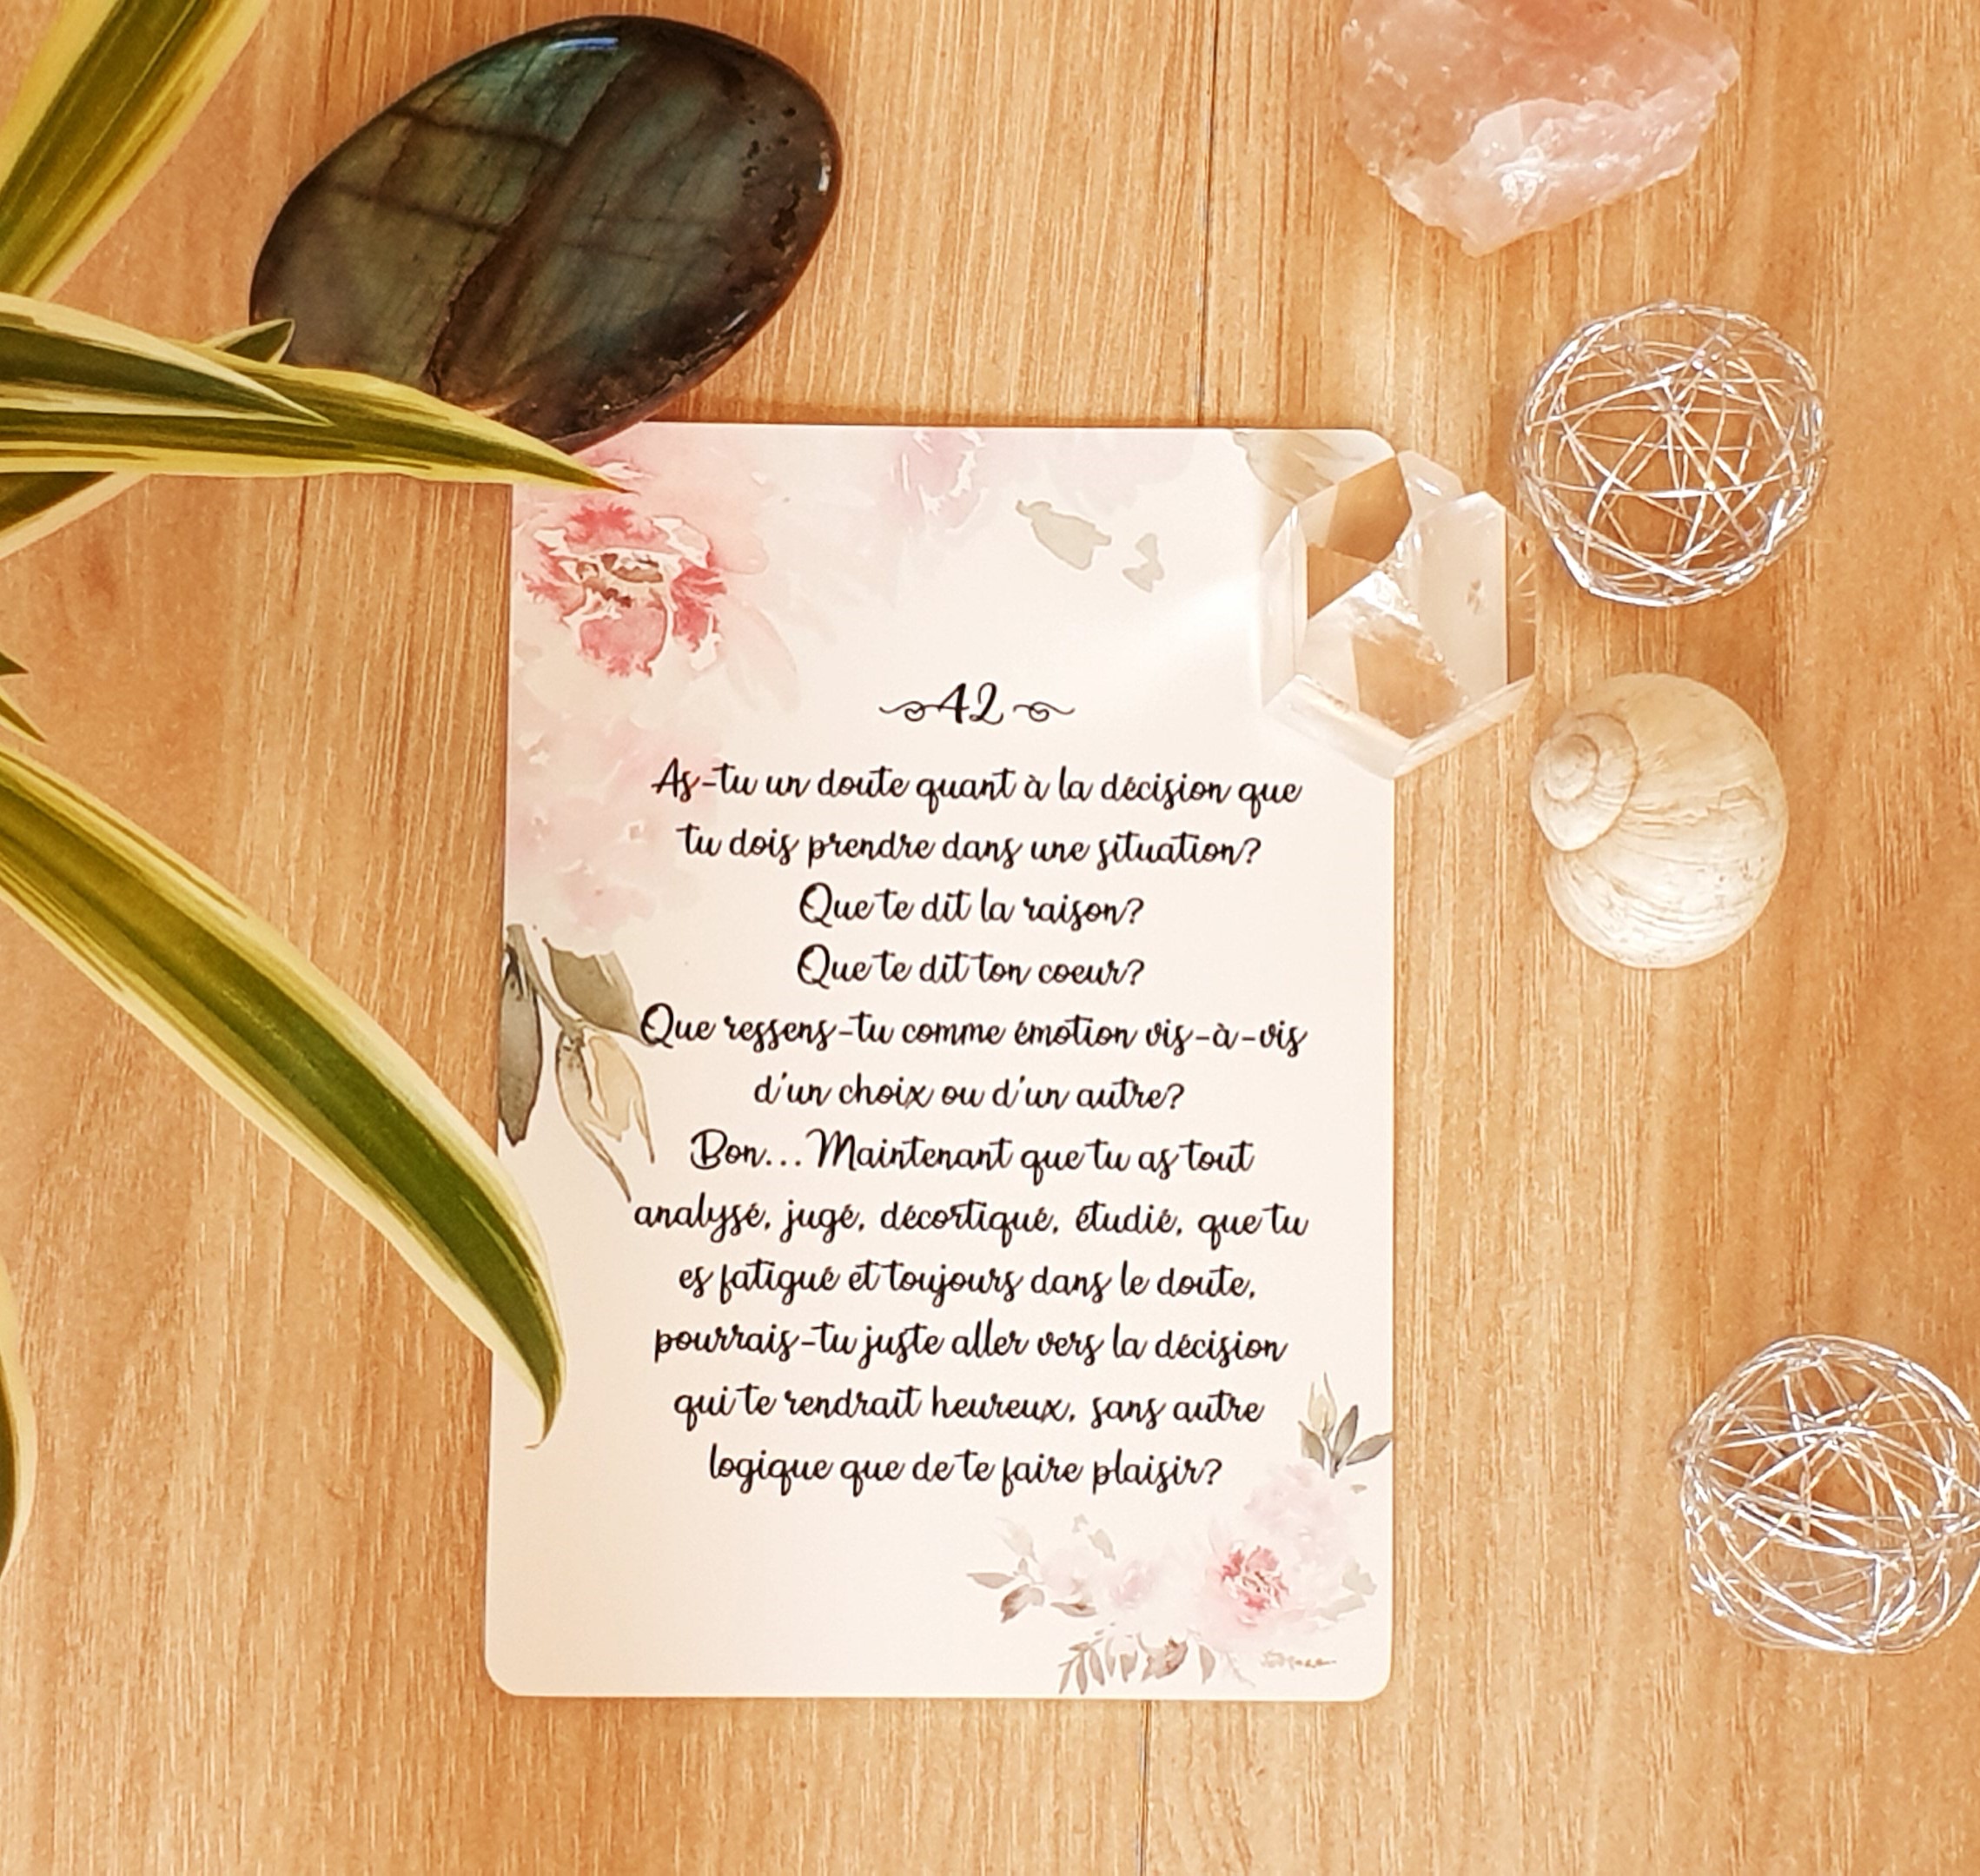 42
As-tu un doute quant à la décision que
tu dois prendre dans une situation?
Que te dit la raison?
Que te dit ton coeur?
Que ressens-tu comme émotion vis-à-vis
d'un choix ou d'un autre?
Bon... Maintenant que tu as tout
analysé, jugé, décortiqué, étudié, que tu
es fatigué et toujours dans le doute,
pourrais-tu juste aller vers la décision
qui te rendrait heureux, sans autre
logique que de te faire plaisir?